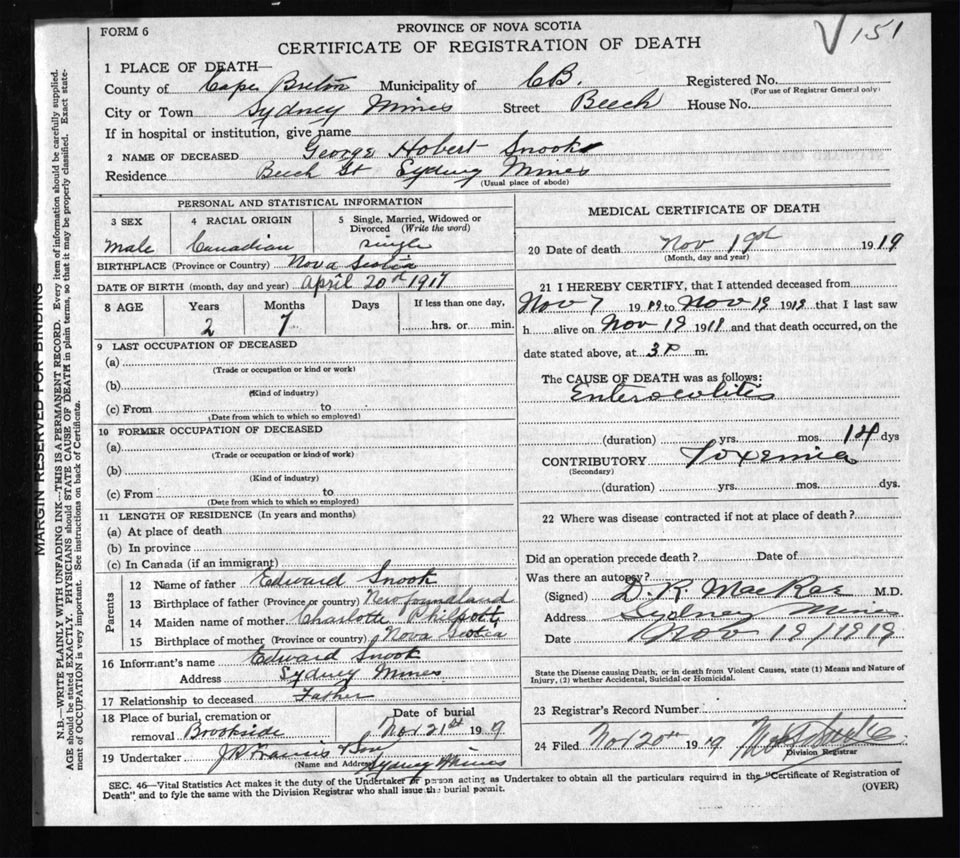 FORM 6
PROVINCE OF NOVA SCOTIA
CERTIFICATE OF REGISTRATION OF DEATH
V 151
MARGIN RESERVED FOR BINDING
N.B.—WRITE PLAINLY, WITH UNFADING INK—THIS IS A PERMANENT RECORD. Every item of information should be carefully supplied.
AGE should be stated EXACTLY. PHYSICIANS should STATE CAUSE OF DEATH in plain terms, so that it may be properly classified. Exact state-
ment of OCCUPATION is very important. See instructions on back of Certificate.
1 PLACE OF DEATH—
County of Cape Breton Municipality of C.B. Registered No.
(For use of Registrar General only)
City or Town Sydney Mines Street Beech House No.
If in hospital or institution, give name
2 NAME OF DECEASED George Hobert Snook
Residence Beech St Sydney Mines
(Usual place of abode)
PERSONAL AND STATISTICAL INFORMATION
3 SEX
Male
4 RACIAL ORIGIN
Canadian
5 Single, Married, Widowed or
Divorced (Write the word)
single
BIRTHPLACE (Province or Country) Nova Scotia
DATE OF BIRTH (month, day and year) April 20th 1917
8 AGE Years Months Days If less than one day,
2 7 hrs. or min.
9 LAST OCCUPATION OF DECEASED
(a)
(Trade or occupation or kind or work)
(b)
(Kind of industry)
(c) From to
(Date from which to which so employed)
10 FORMER OCCUPATION OF DECEASED
(a)
(Trade or occupation or kind of work)
(b)
(Kind of industry)
(c) From to
(Date from which to which so employed)
11 LENGTH OF RESIDENCE (In years and months)
(a) At place of death
(b) In province
(c) In Canada (if an immigrant)
Parents
12 Name of father Edward Snook
13 Birthplace of father (Province or country) Newfoundland
14 Maiden name of mother Charlotte Philpott
15 Birthplace of mother (Province or country) Nova Scotia
16 Informant's name Edward Snook
Address Sydney Mines
17 Relationship to deceased Father
18 Place of burial, cremation or Date of burial
removal Brookside Nov 21st 1919
19 Undertaker J R Francis & Son
(Name and Address) Sydney Mines
MEDICAL CERTIFICATE OF DEATH
20 Date of death Nov 19th 1919
(Month, day and year)
21 I HEREBY CERTIFY, that I attended deceased from
Nov 7 1919 to Nov 19 1919 that I last saw
h alive on Nov 19 1919 and that death occurred, on the
date stated above, at 3 P m.
The CAUSE OF DEATH was as follows:
Enterocolitis
(duration) yrs. mos. 14 dys
CONTRIBUTORY Toxemia
(Secondary)
(duration) yrs. mos. dys.
22 Where was disease contracted if not at place of death?
Did an operation precede death? Date of
Was there an autopsy?
(Signed) D. R. MacRae M.D.
Address Sydney Mines
Date Nov 19/1919
State the Disease causing Death, or in death from Violent Causes, state (1) Means and Nature of
Injury, (2) whether Accidental, Suicidal or Homicidal.
23 Registrar's Record Number
24 Filed Nov 20th 1919
Division Registrar
SEC. 46—Vital Statistics Act makes it the duty of the Undertaker or person acting as Undertaker to obtain all the particulars required in the "Certificate of Registration of
Death" and to fyle the same with the Division Registrar who shall issue the burial permit.
(OVER)